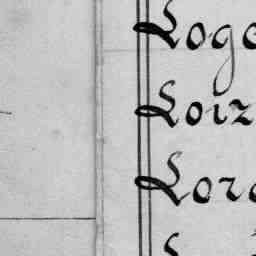 Loge
Loiz
Lore